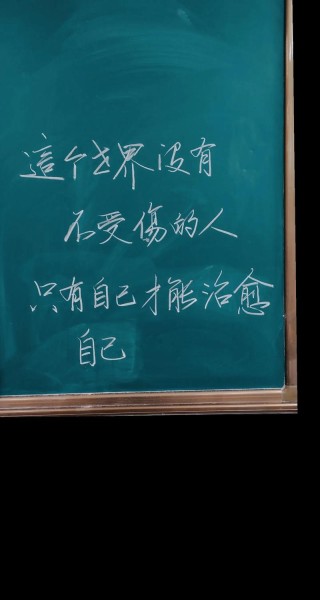 這个世界没有
不受傷的人
只有自己才能治愈
自己